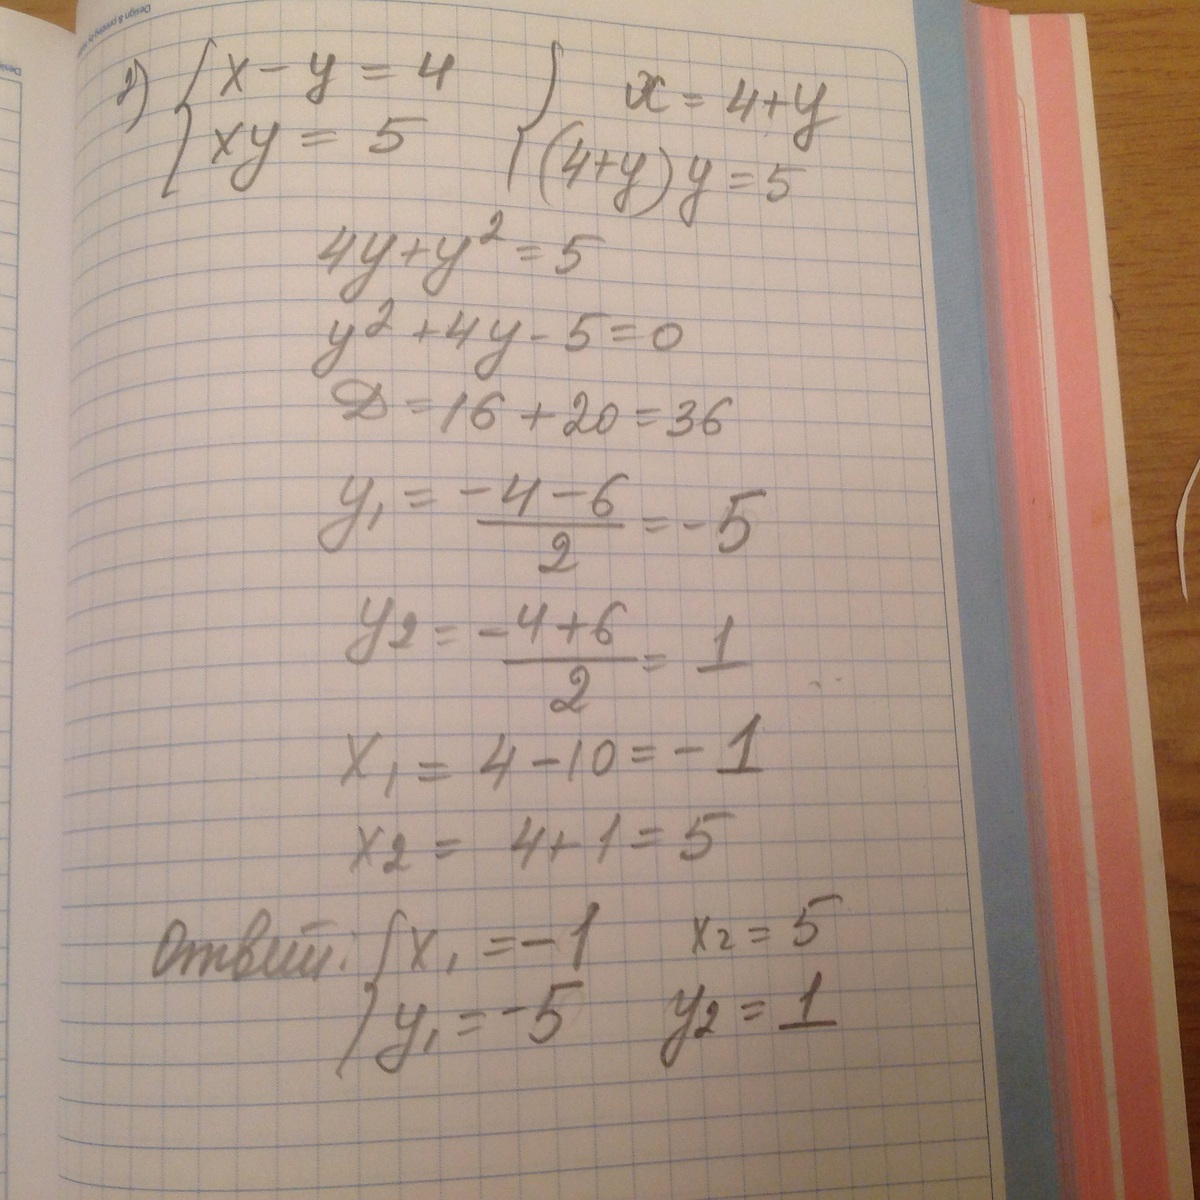 2) { x - y = 4 { x = 4 + y
{ xy = 5 { (4+y) y = 5
4y + y² = 5
y² + 4y - 5 = 0
D = 16 + 20 = 36
y₁ = (-4 - 6)/2 = -5
y₂ = (-4 + 6)/2 = 1
x₁ = 4 - 10 = -1
x₂ = 4 + 1 = 5
Ответ: { x₁ = -1 x₂ = 5
{ y₁ = -5 y₂ = 1